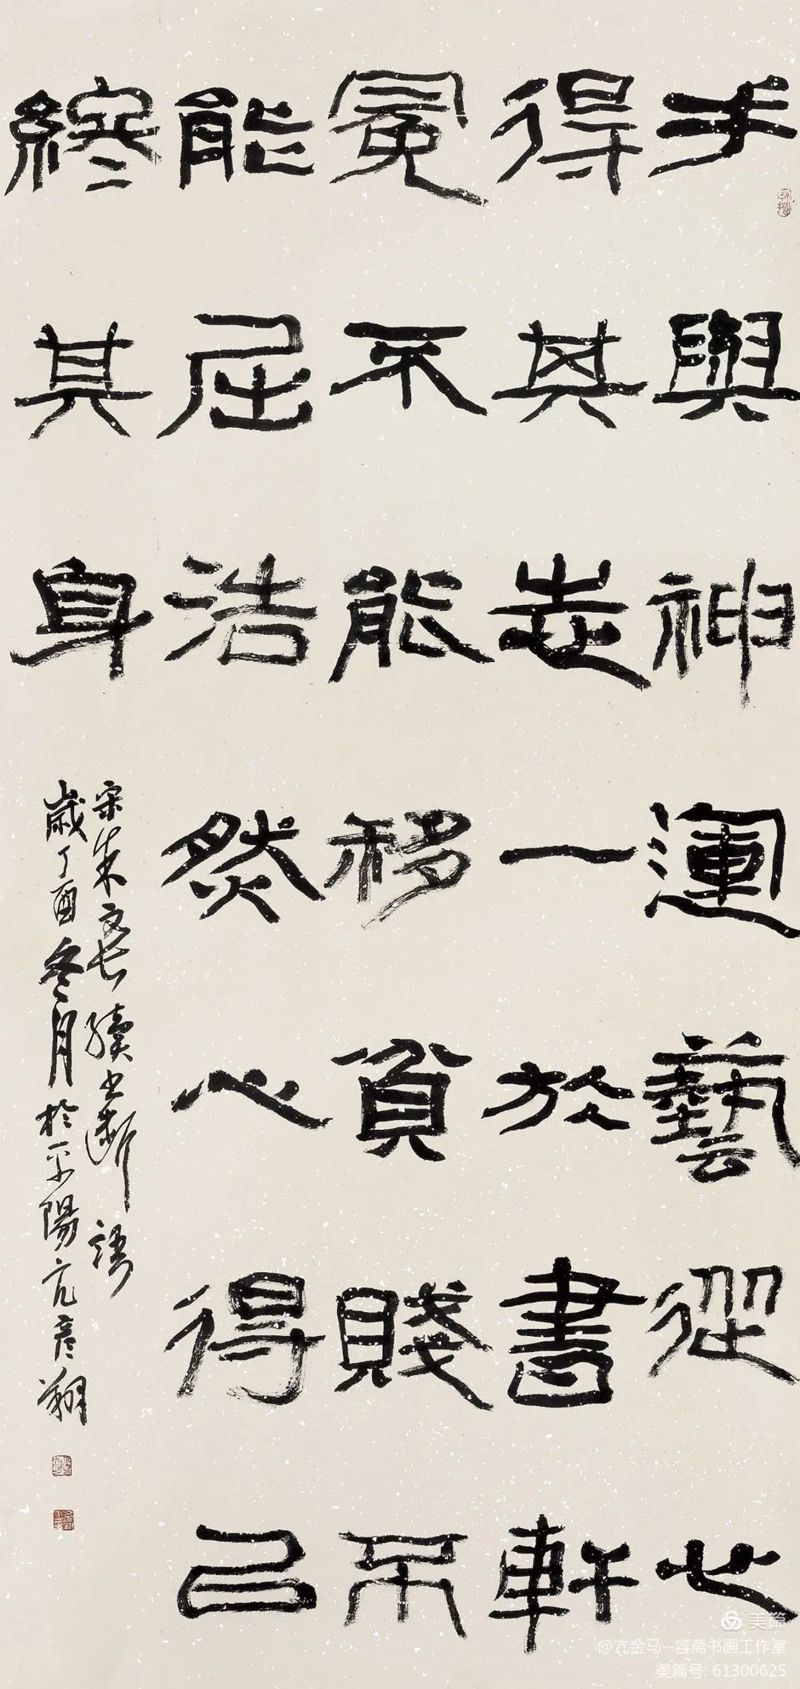 手與神運藝從心
得其志一於書軒
冕不能移貧賤不
能屈浩然心得以
終其身
宋朱文長續書斷語
歲丁酉冬月於平陽亢彥翔
美篇
@亢金马--容斋书画工作室
美篇号: 61300625